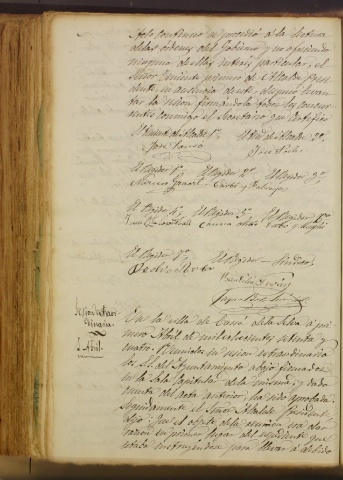 Acto continuo se procedió á la lectura
de las órdenes del Gobierno y no ofreciendo
ninguna de ellas interés particular, el
Señor Teniente primero de Alcalde Presi
dente en ausencia de este, dispuso levan
tar la sesion firmándola todos los concur
rentes conmigo el Secretario que certifico
El Teniente de Alcalde 1º, El Teniente de Alcalde 2º,
José
El Regidor 1º, El Regidor 2º, El Regidor 3º,
El Regidor 4º, El Regidor 5º, El Regidor 6º,
El Regidor 7º, El Regidor Sindico,
Pedro
Sesion estraor
dinaria
1 Abril
En la villa de Cassá de la Selva á pri
mero Abril de mil ochocientos setenta y
cuatro. Reunidos en sesion extraordinaria
los S.S. del Ayuntamiento abajo firmados
en la Sala Capitular de la misma, y dado
cuenta del acta anterior, ha sido aprobada.
Seguidamente el Señor Alcalde Presidente
dijo: Que el objeto de la reunion era dar
razon en primer lugar del espediente que
estaba instruyéndose para llevar á debido